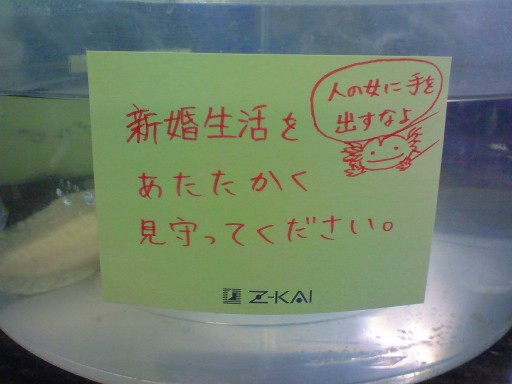 人の女に手を
出すなよ
新婚生活を
あたたかく
見守ってください。
Z-KAI